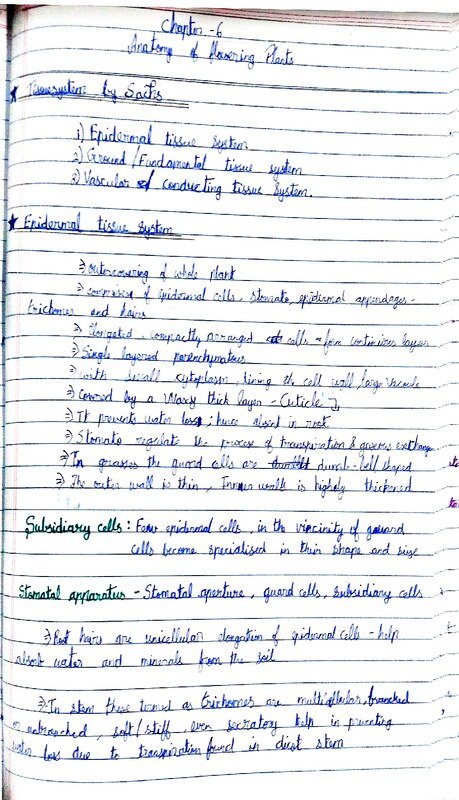 Chapter - 6
Anatomy of flowering Plants
★ Tissuesystem by Sachs
1) Epidermal tissue system
2) Ground / Fundamental tissue system
3) Vascular / conducting tissue system.
★ Epidermal tissue system
⇒ outercovering of whole plant
⇒ comprising of epidermal cells, stomata, epidermal appendages -
trichomes and hairs
⇒ Elongated, compactly arranged cells - form continuous layer
⇒ Single layered parenchymatous
⇒ with small cytoplasm, lining the cell wall large vacuole
⇒ covered by a waxy thick layer - Cuticle
⇒ It prevents water loss; hence absent in root
⇒ Stomata regulate the process of transpiration & gaseous exchange
⇒ In grasses the guard cells are dumb-bell shaped
⇒ The outer wall is thin, Inner walls is highly thickened
Subsidiary cells : Few epidermal cells, in the vincinity of guard
cells become specialised in their shape and size
Stomatal apparatus - Stomatal aperture, guard cells, subsidiary cells
⇒ Root hairs are unicellular elongation of epidermal cells - help
absorb water and minerals from the soil
⇒ In stem these termed as trichomes are multicellular, branched
or unbranched, soft/stiff, even secratory help in preventing
water loss due to transpiration found in dicot stem